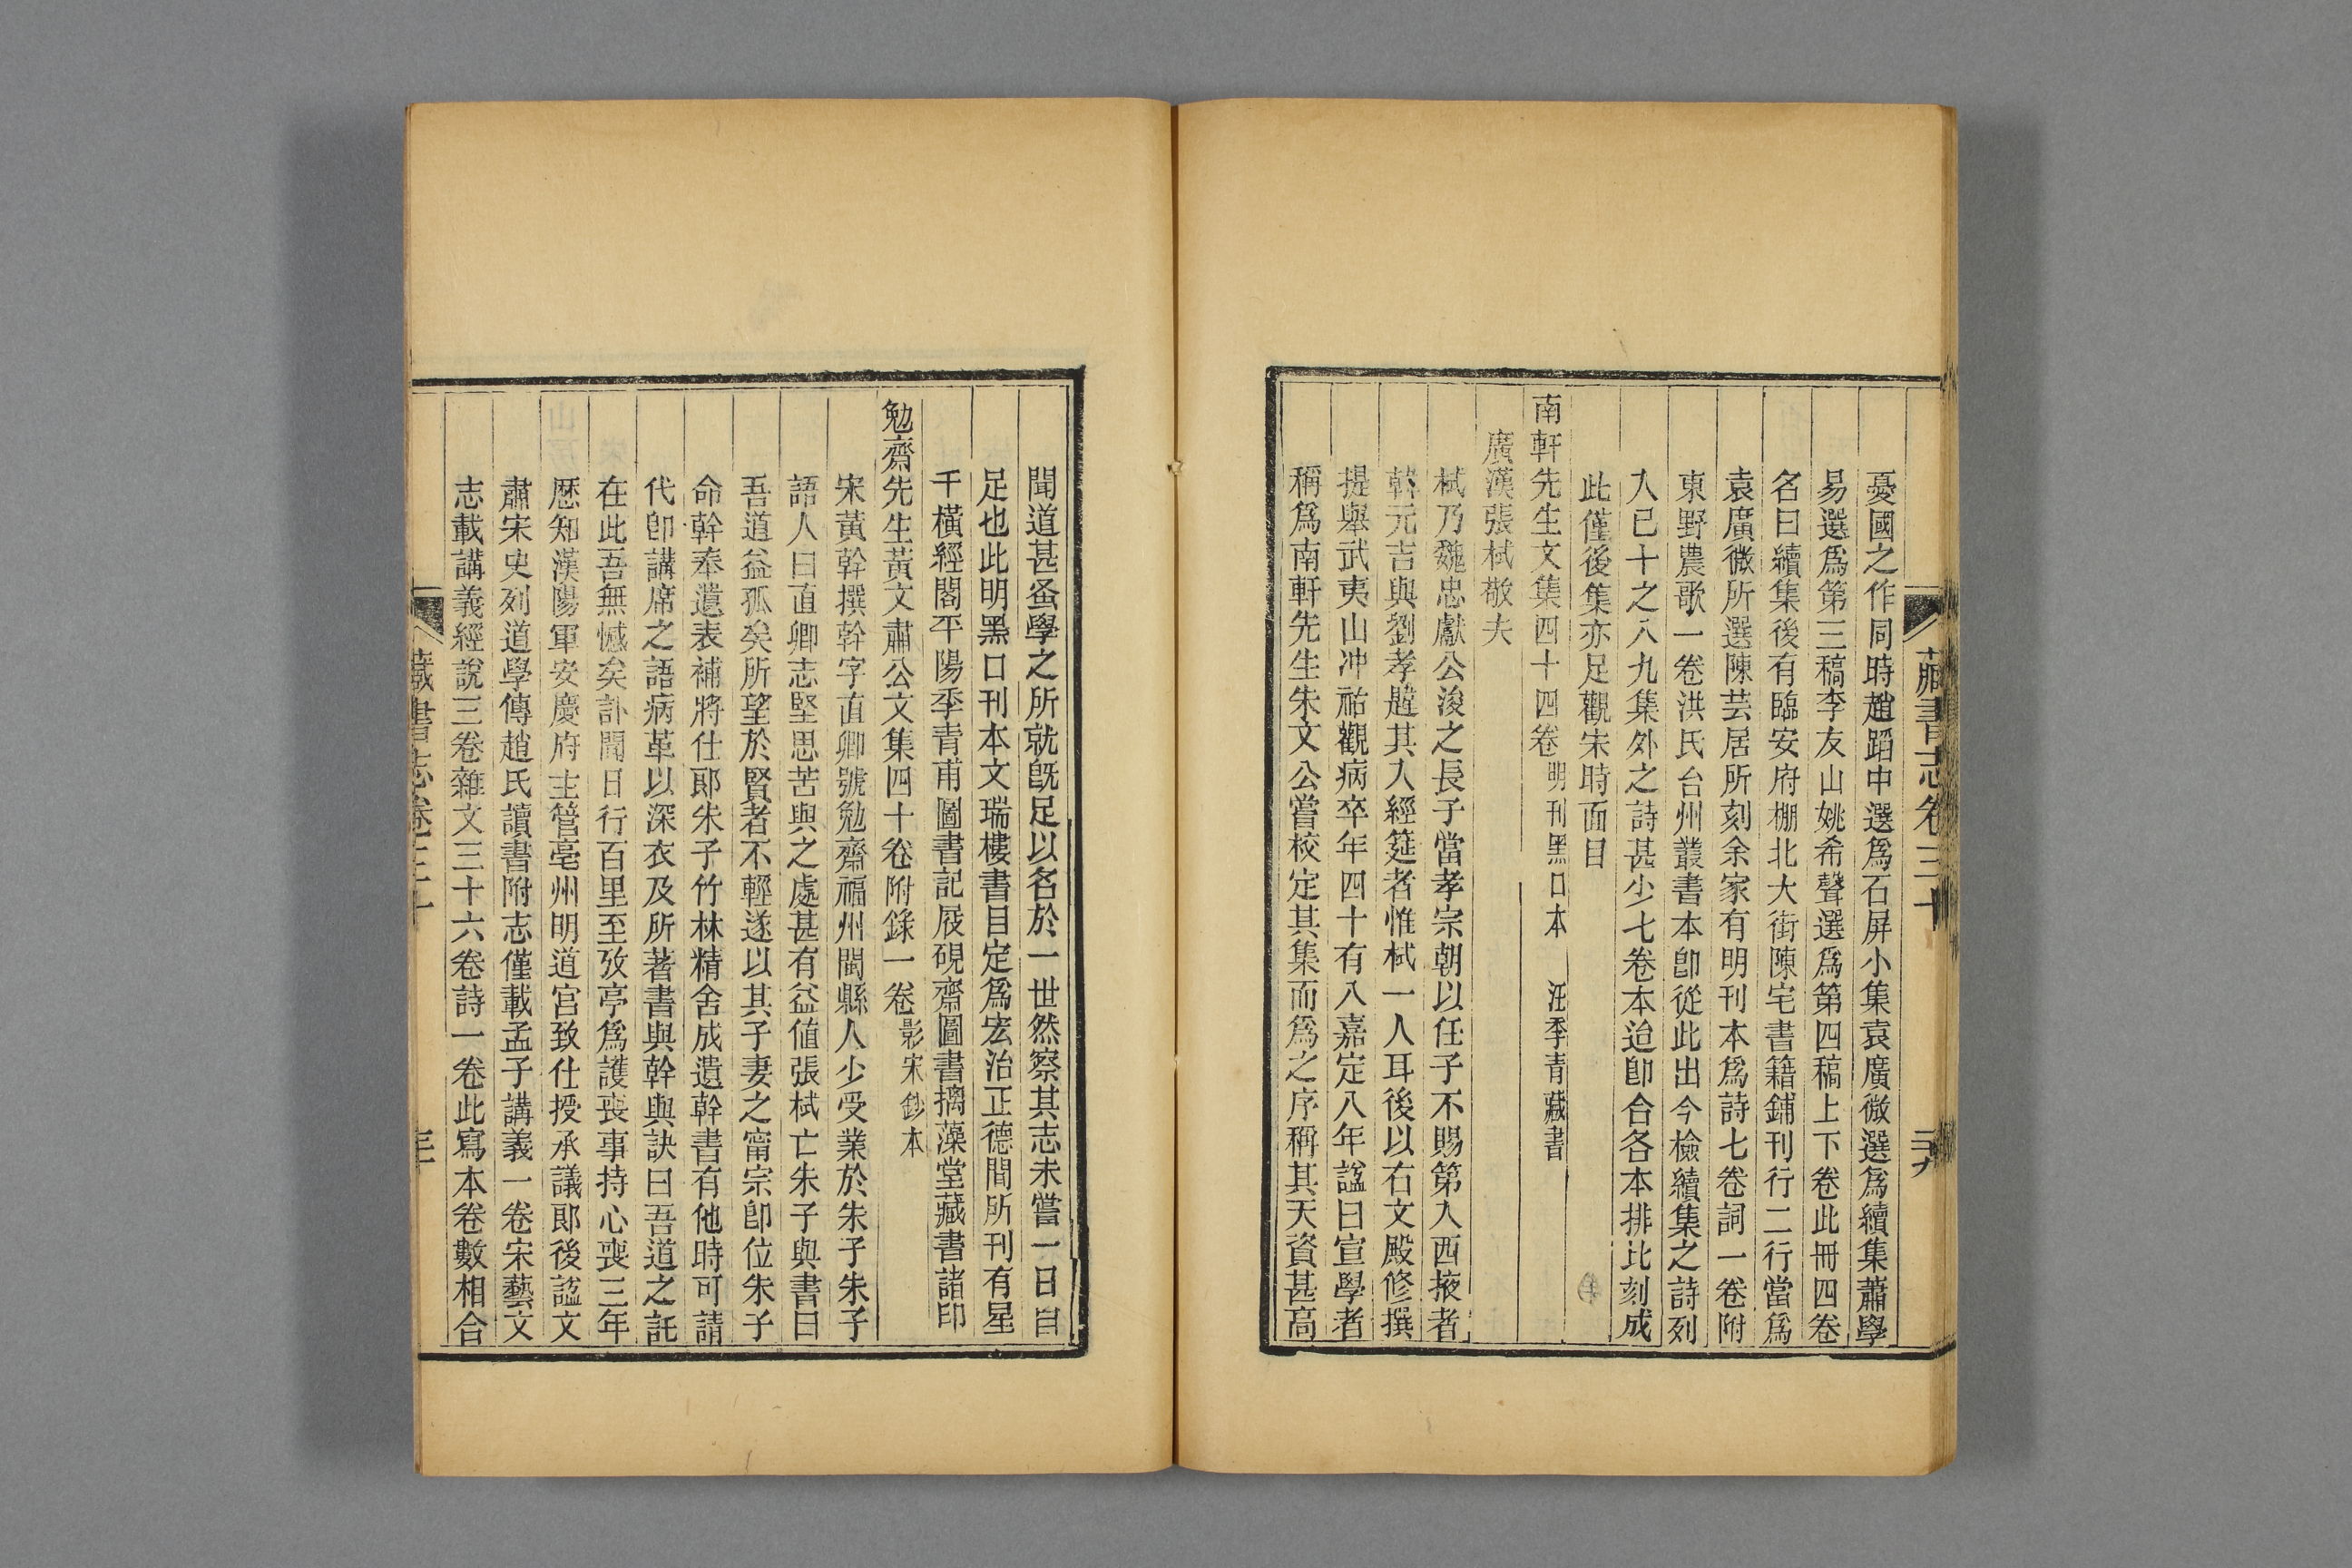 藏書志卷三十
二十九
憂國之作同時趙蹈中選爲石屏小集袁廣微選爲續集蕭學
易選爲第三稿李友山姚希聲選爲第四稿上下卷此冊四卷
名曰續集後有臨安府棚北大街陳宅書籍鋪刊行二行當爲
袁廣微所選陳芸居所刻余家有明刊本爲詩七卷詞一卷附
東野農歌一卷洪氏台州叢書本卽從此出今檢續集之詩列
入已十之八九集外之詩甚少七卷本迨卽合各本排比刻成
此僅後集亦足觀宋時面目
南軒先生文集四十四卷明刊黑口本 汪季青藏書
廣漢張栻敬夫
栻乃魏忠獻公浚之長子當孝宗朝以任子不賜第入西掖者
韓元吉與劉孝韙其入經筵者惟栻一人耳後以右文殿修撰
提舉武夷山冲祐觀病卒年四十有八嘉定八年諡曰宣學者
稱爲南軒先生朱文公嘗校定其集而爲之序稱其天資甚高
聞道甚蚤學之所就旣足以名於一世然察其志未嘗一日自
足也此明黑口刊本文瑞樓書目定爲宏治正德間所刊有星
千橫經閣平陽季青甫圖書記屐硯齋圖書摛藻堂藏書諸印
勉齋先生黃文肅公文集四十卷附錄一卷影宋鈔本
宋黃幹撰幹字直卿號勉齋福州閩縣人少受業於朱子朱子
語人曰直卿志堅思苦與之處甚有益値張栻亡朱子與書曰
吾道益孤矣所望於賢者不輕遂以其子妻之甯宗卽位朱子
命幹奉遺表補將仕郞朱子竹林精舍成遺幹書有他時可請
代卽講席之語病革以深衣及所著書與幹與訣曰吾道之託
在此吾無憾矣訃聞日行百里至攷亭爲護喪事持心喪三年
歷知漢陽軍安慶府主管亳州明道宮致仕授承議郞後諡文
肅宋史列道學傳趙氏讀書附志僅載孟子講義一卷宋藝文
志載講義經說三卷雜文三十六卷詩一卷此寫本卷數相合
藏書志卷三十
三十